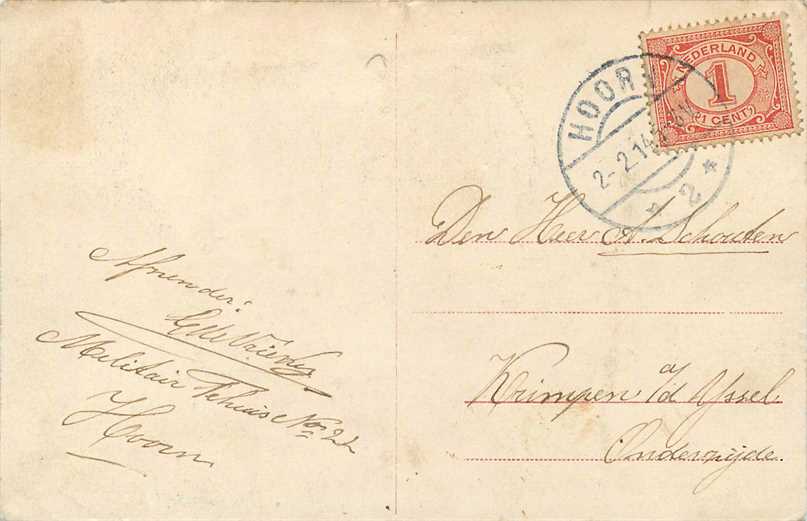 HOORN
2-2.14
2
NEDERLAND
1
(1 CENT)
Den Heer A. Schouten
Krimpen a/d Yssel
Onderzijde.
Afzender:
Militair Tehuis No 22
Hoorn